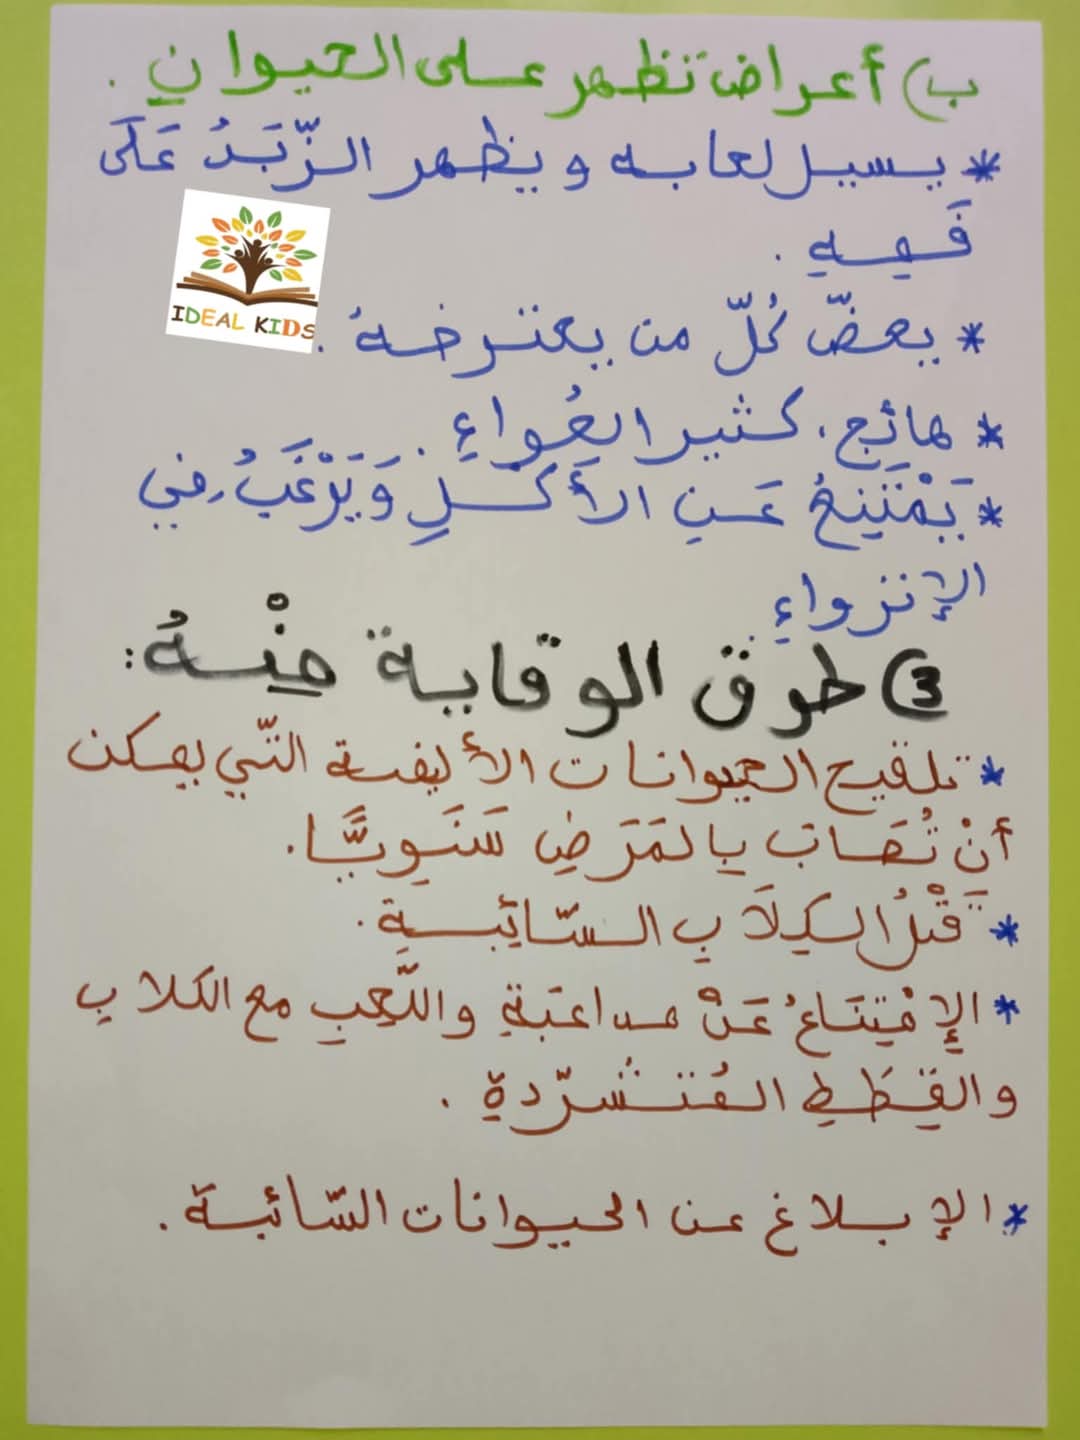 ب) أعراض تظهر على الحيوانِ .
* يسيل لعابه و يظهر الزّبَدُ عَلَى
فَمِهِ .
IDEAL KIDS
* يعضّ كُلّ من يعترضهُ .
* هائج، كثير العُواءِ .
* يَمْتَنِعُ عَنِ الأَكْلِ وَيَرْغَبُ في
الإنزواءِ
3) طرق الوقاية مِنْهُ:
* تلقيح الحيوانات الأليفة التّي يمكن
أنْ تُصَابَ بِالمَرَضِ سَنَوِيًّا.
* قَتْلُ الكِلَابِ السّائِبَةِ .
* الإِمْتِنَاعُ عَنْ مداعبَةِ واللَّعِبِ مع الكلابِ
والقِطَطِ المُتشرّدةِ .
* الإبلاغ عن الحيوانات السّائبة .